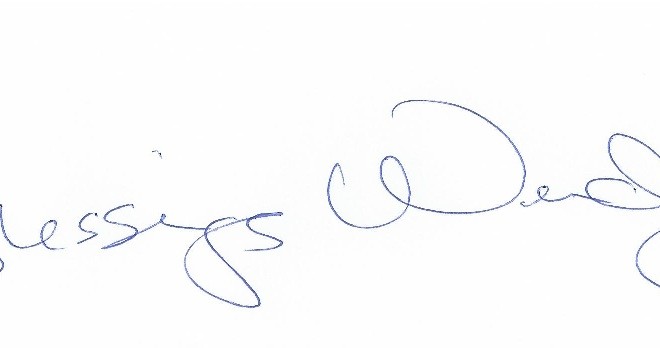 lessings Wendy